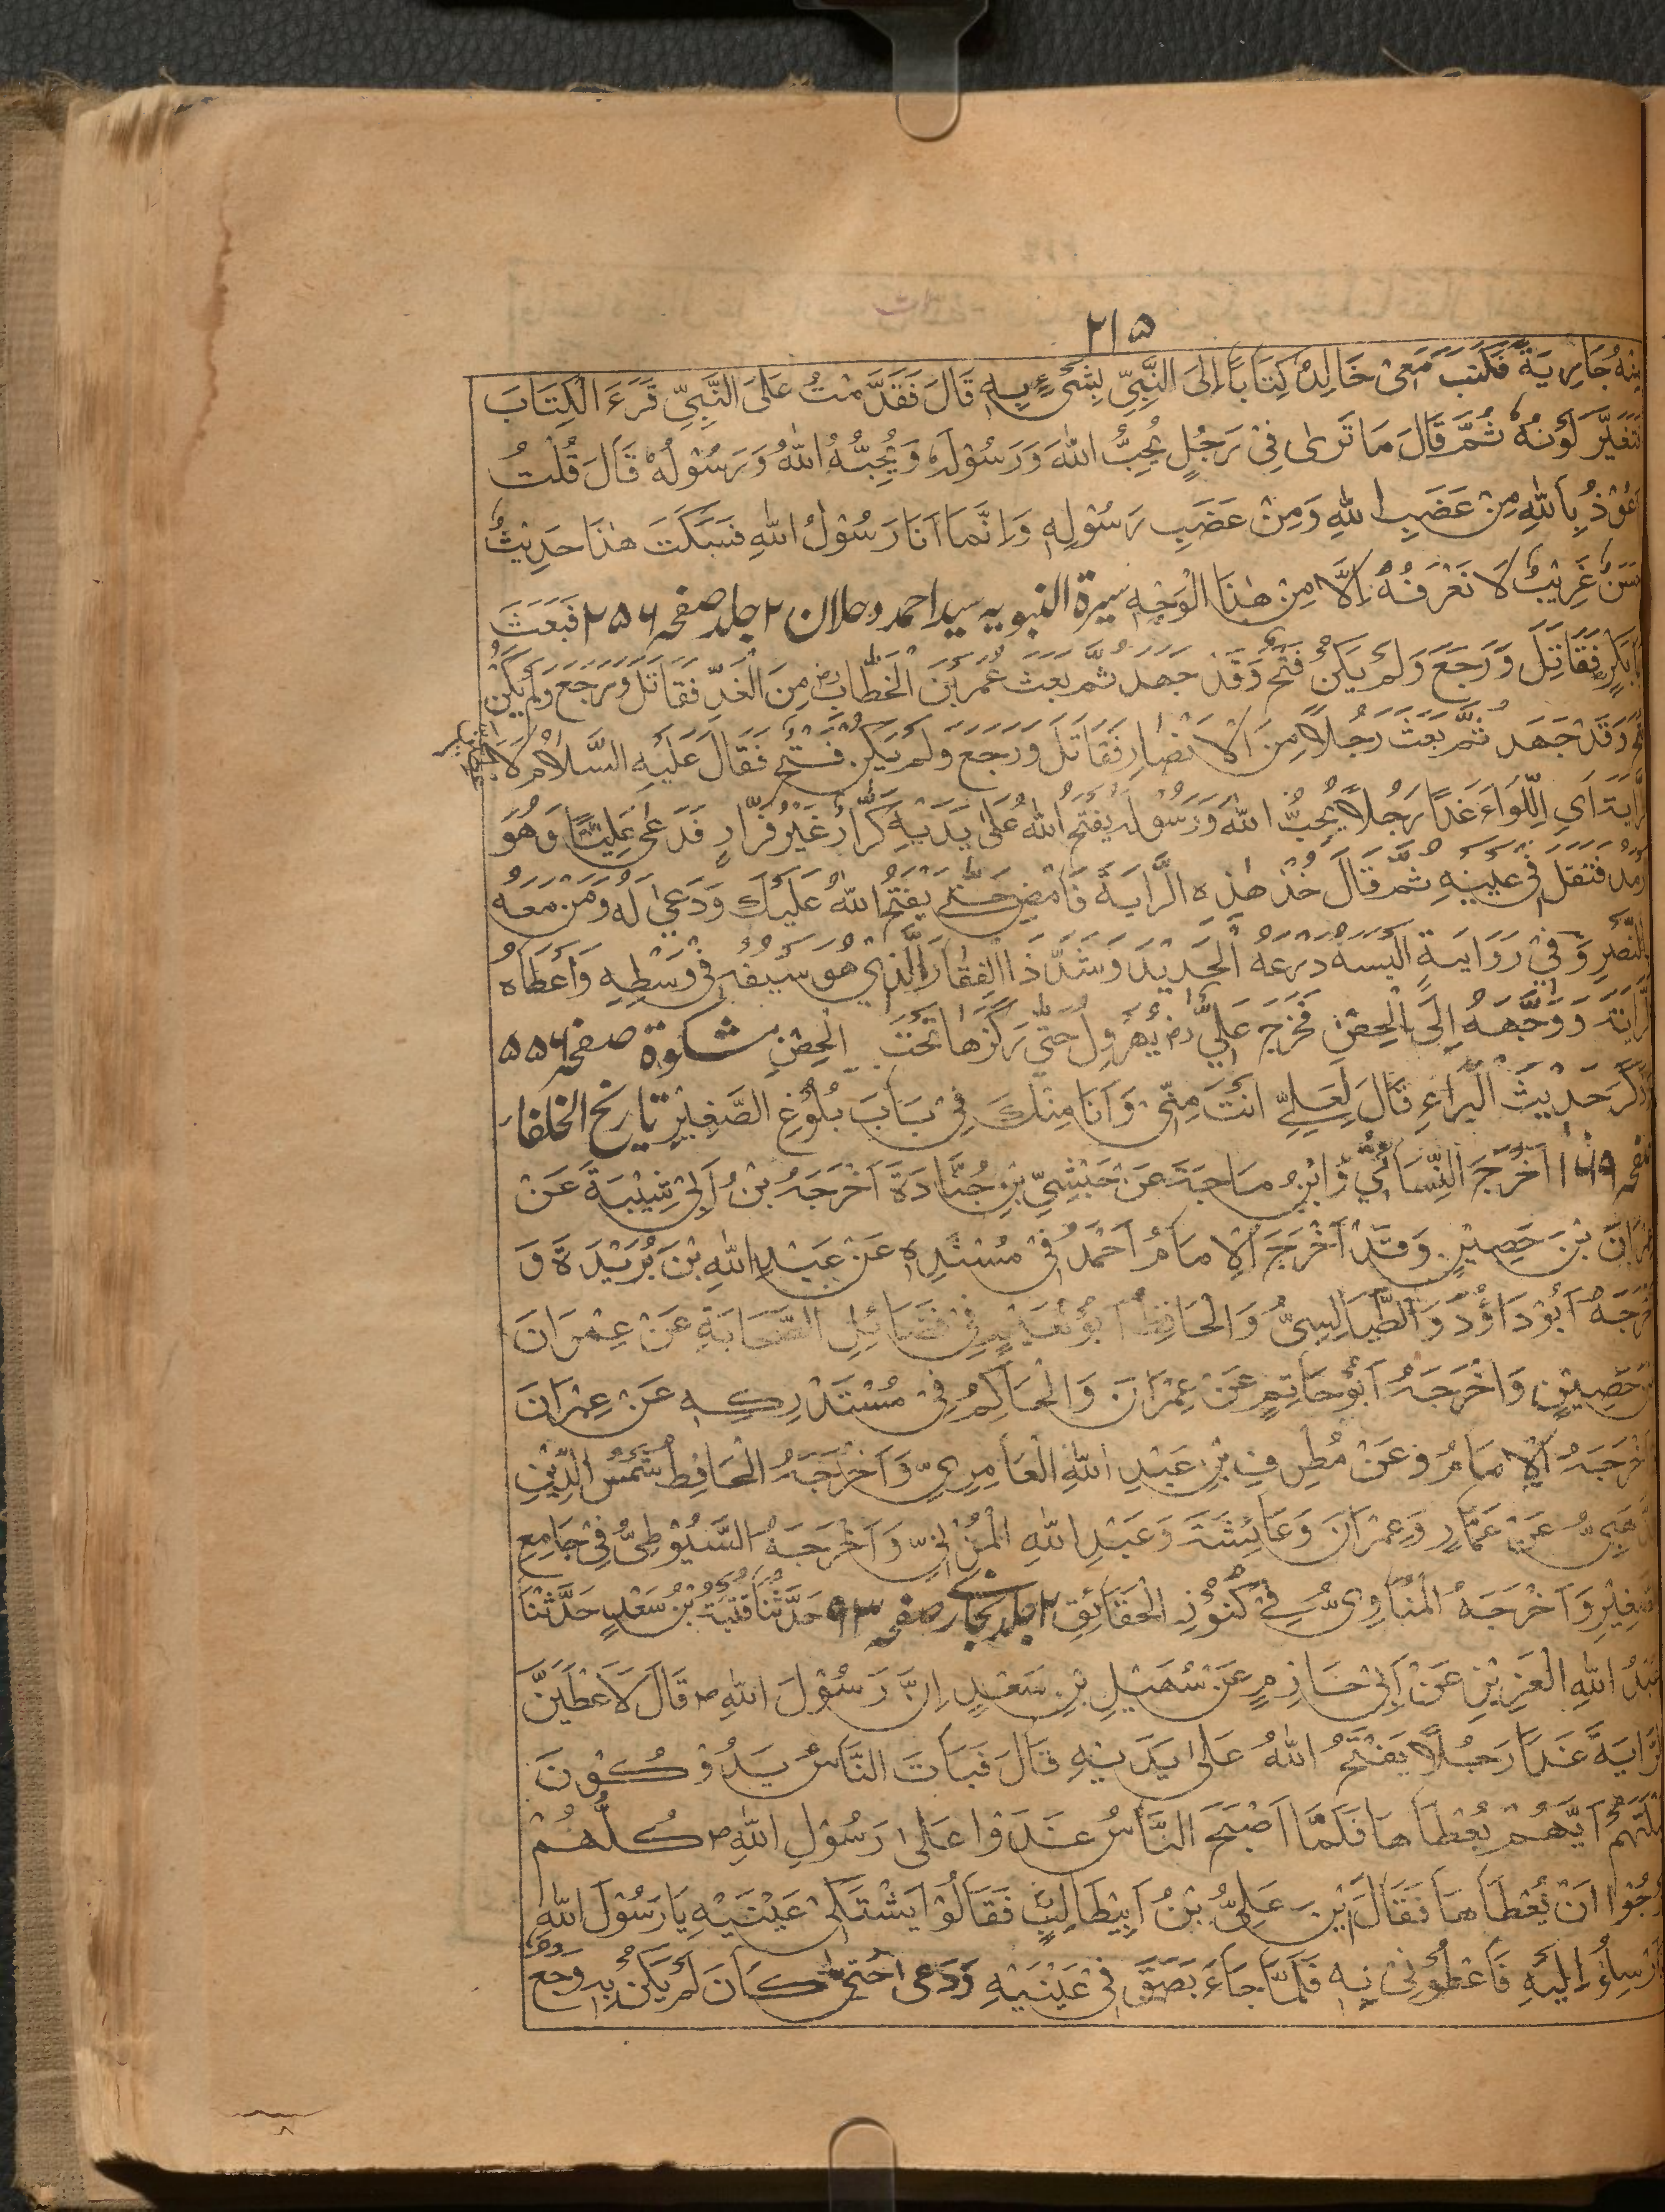 ۲۱۵
مِنْهُ جَارِيَةً فَكَتَبَ مَعِىْ خَالِدٌ كِتَابًا اِلَى النَّبِيِّ بِشَىْءٍ بِهٖ قَالَ فَقَدَّمْتُ عَلَى النَّبِيِّ قَرَءَ الْكِتَابَ
تَغَيَّرَ لَوْنُهٗ ثُمَّ قَالَ مَا تَرٰى فِيْ رَجُلٍ يُحِبُّ اللهَ وَرَسُوْلَهٗ وَيُحِبُّهُ اللهُ وَرَسُوْلُهٗ قَالَ قُلْتُ
عُوْذُ بِاللهِ مِنْ غَضَبِ اللهِ وَمِنْ غَضَبِ رَسُوْلِهٖ وَاِنَّمَا اَنَا رَسُوْلُ اللهِ فَسَكَتَ هٰذَا حَدِيْثٌ
سَنٌ غَرِيْبٌ لَا نَعْرَفُهٗ اِلَّا مِنْ هٰذَا الْوَجْهِ سيرة النبويه سيد احمد دحلان ۲ جلد صفحہ ۲۵۶ فَبَعَثَ
بَابَكْرٍ فَقَاتَلَ وَرَجَعَ وَلَمْ يَكُنْ فَتْحٌ وَقَدْ جَهَدَ ثُمَّ بَعَثَ عُمَرَ بْنَ الْخَطَّابِ رض مِنَ الْغَدِّ فَقَاتَلَ وَرَجَعَ وَلَمْ يَكُنْ
تْحٌ وَقَدْ جَهَدَ ثُمَّ بَعَثَ رَجُلًا مِنَ الْاَنْصَارِ فَقَاتَلَ وَرَجَعَ وَلَمْ يَكُنْ فَتْحٌ فَقَالَ عَلَيْهِ السَّلَامُ
رَّايَةَ اَىِ اللِّوَاءَ غَدًا رَجُلًا يُحِبُّ اللهَ وَرَسُوْلَهٗ يَفْتَحُ اللهُ عَلٰى يَدَيْهِ كَرَّارٌ غَيْرُ فَرَّارٍ فَدَعٰى عَلِيًّا وَهُوَ
رْمَدُ فَتَفَلَ فِيْ عَيْنِهٖ ثُمَّ قَالَ خُذْ هٰذِهِ الرَّايَةَ فَامْضِ حَتّٰى يَفْتَحُ اللهُ عَلَيْكَ وَدَعٰى لَهٗ وَمَنْ مَعَهٗ
بِالنَّصْرِ وَفِيْ رَوَايَةٍ اَلْبَسَهٗ دِرْعَهُ الْحَدِيْدَ وَشَدَّ ذَا الْفِقَارِ الَّذِيْ هُوَ سَيْفُهٗ فِيْ وَسْطِهٖ وَاَعْطَاهُ
لرَّايَةَ وَوَجَّهَهٗ اِلَى الْحِصْنِ فَخَرَجَ عَلِيٌّ رض يُهَرْوِلُ حَتّٰى رَكَزَهَا تَحْتَ الْحِصْنِ مشكوة صفحہ ۵۵۶
ذَكَرَ حَدِيْثَ الْبَرَاءِ قَالَ لِعَلِيٍّ اَنْتَ مِنِّيْ وَاَنَا مِنْكَ فِيْ بَابَ بُلُوْغِ الصَّغِيْرِ تاريخ الخلفاء
صفحہ ۱۶۹ اَخْرَجَ النِّسَائِيُّ وَابْنُ مَاجَةَ عَنْ حَبْشِيِّ بْنِ جُنَادَةَ اَخْرَجَهُ بْنُ اَبِيْ شَيْبَةَ عَنْ
مْرَانَ بْنَ حَصِيْنٍ وَقَدْ اَخْرَجَ الْاِمَامُ اَحْمَدُ فِيْ مُسْنَدِهٖ عَنْ عَبْدِ اللهِ بْنَ بُرَيْدَةَ وَ
خْرَجَهٗ اَبُوْ دَاؤُدَ وَالطَّيَالِسِيُّ وَالْحَافِظُ اَبُوْ نُعَيْمٍ فِيْ فَضَائِلِ الصَّحَابَةِ عَنْ عِمْرَانَ
بْنَ حَصِيْنٍ وَاَخْرَجَهٗ اَبُوْ حَاتِمٍ عَنْ عِمْرَانَ وَالْحَاكِمُ فِيْ مُسْتَدْرِكِهٖ عَنْ عِمْرَانَ
اَخْرَجَهُ الْاِمَامُ وَعَنْ مُطْرِفِ بْنِ عَبْدِ اللهِ الْعَامِرِيِّ وَاَخْرَجَهُ الْحَافِظُ شَمْسُ الدِّيْنِ
ذَّهَبِيُّ عَنْ عَمَّارٍ وَعِمْرَانَ وَعَائِشَةَ وَعَبْدِ اللهِ الْمُزْنِيِّ وَاَخْرَجَهُ السَّيُوْطِيُّ فِيْ جَامِعِ
صَغِيْرِ وَاَخْرَجَهُ الْمُنَاوِيُّ فِيْ كُنُوْزِ الْحَقَائِقِ ۲ جلد بخارى صفحہ ۹۳ حَدَّثَنَا قُتَيْبَةُ بْنُ سَعْدٍ حَدَّثَنَا
عَبْدُ اللهِ الْعَزِيْزِ عَنْ اَبِيْ حَازِمٍ عَنْ سُهَيْلِ بْنِ سَعْدٍ اِنَّ رَسُوْلَ اللهِ ص قَالَ لَاَعْطَيَنَّ
لرَّايَةَ غَدًا رَجُلًا يَفْتَحُ اللهُ عَلٰى يَدَيْهِ قَالَ فَبَاتَ النَّاسُ يَدُوْكُوْنَ
يْلَتَهُمْ اَيُّهُمْ يُعْطَاهَا فَلَمَّا اَصْبَحَ النَّاسُ غَدَوْا عَلٰى رَسُوْلِ اللهِ ص كُلُّهُمْ
رْجُوْا اَنْ يُعْطَاهَا فَقَالَ اَيْنَ عَلِيُّ بْنُ اَبِيْطَالِبٍ فَقَالُوْا يَشْتَكِىْ عَيْنَيْهِ يَا رَسُوْلَ اللهِ
اَرْسِلُوْا اِلَيْهِ فَاَعْطُوْنِىْ بِهٖ فَلَمَّا جَاءَ بَصَقَ فِيْ عَيْنَيْهِ وَدَعٰى حَتّٰى كَانَ لَمْ يَكُنْ بِهٖ وَجَعٌ